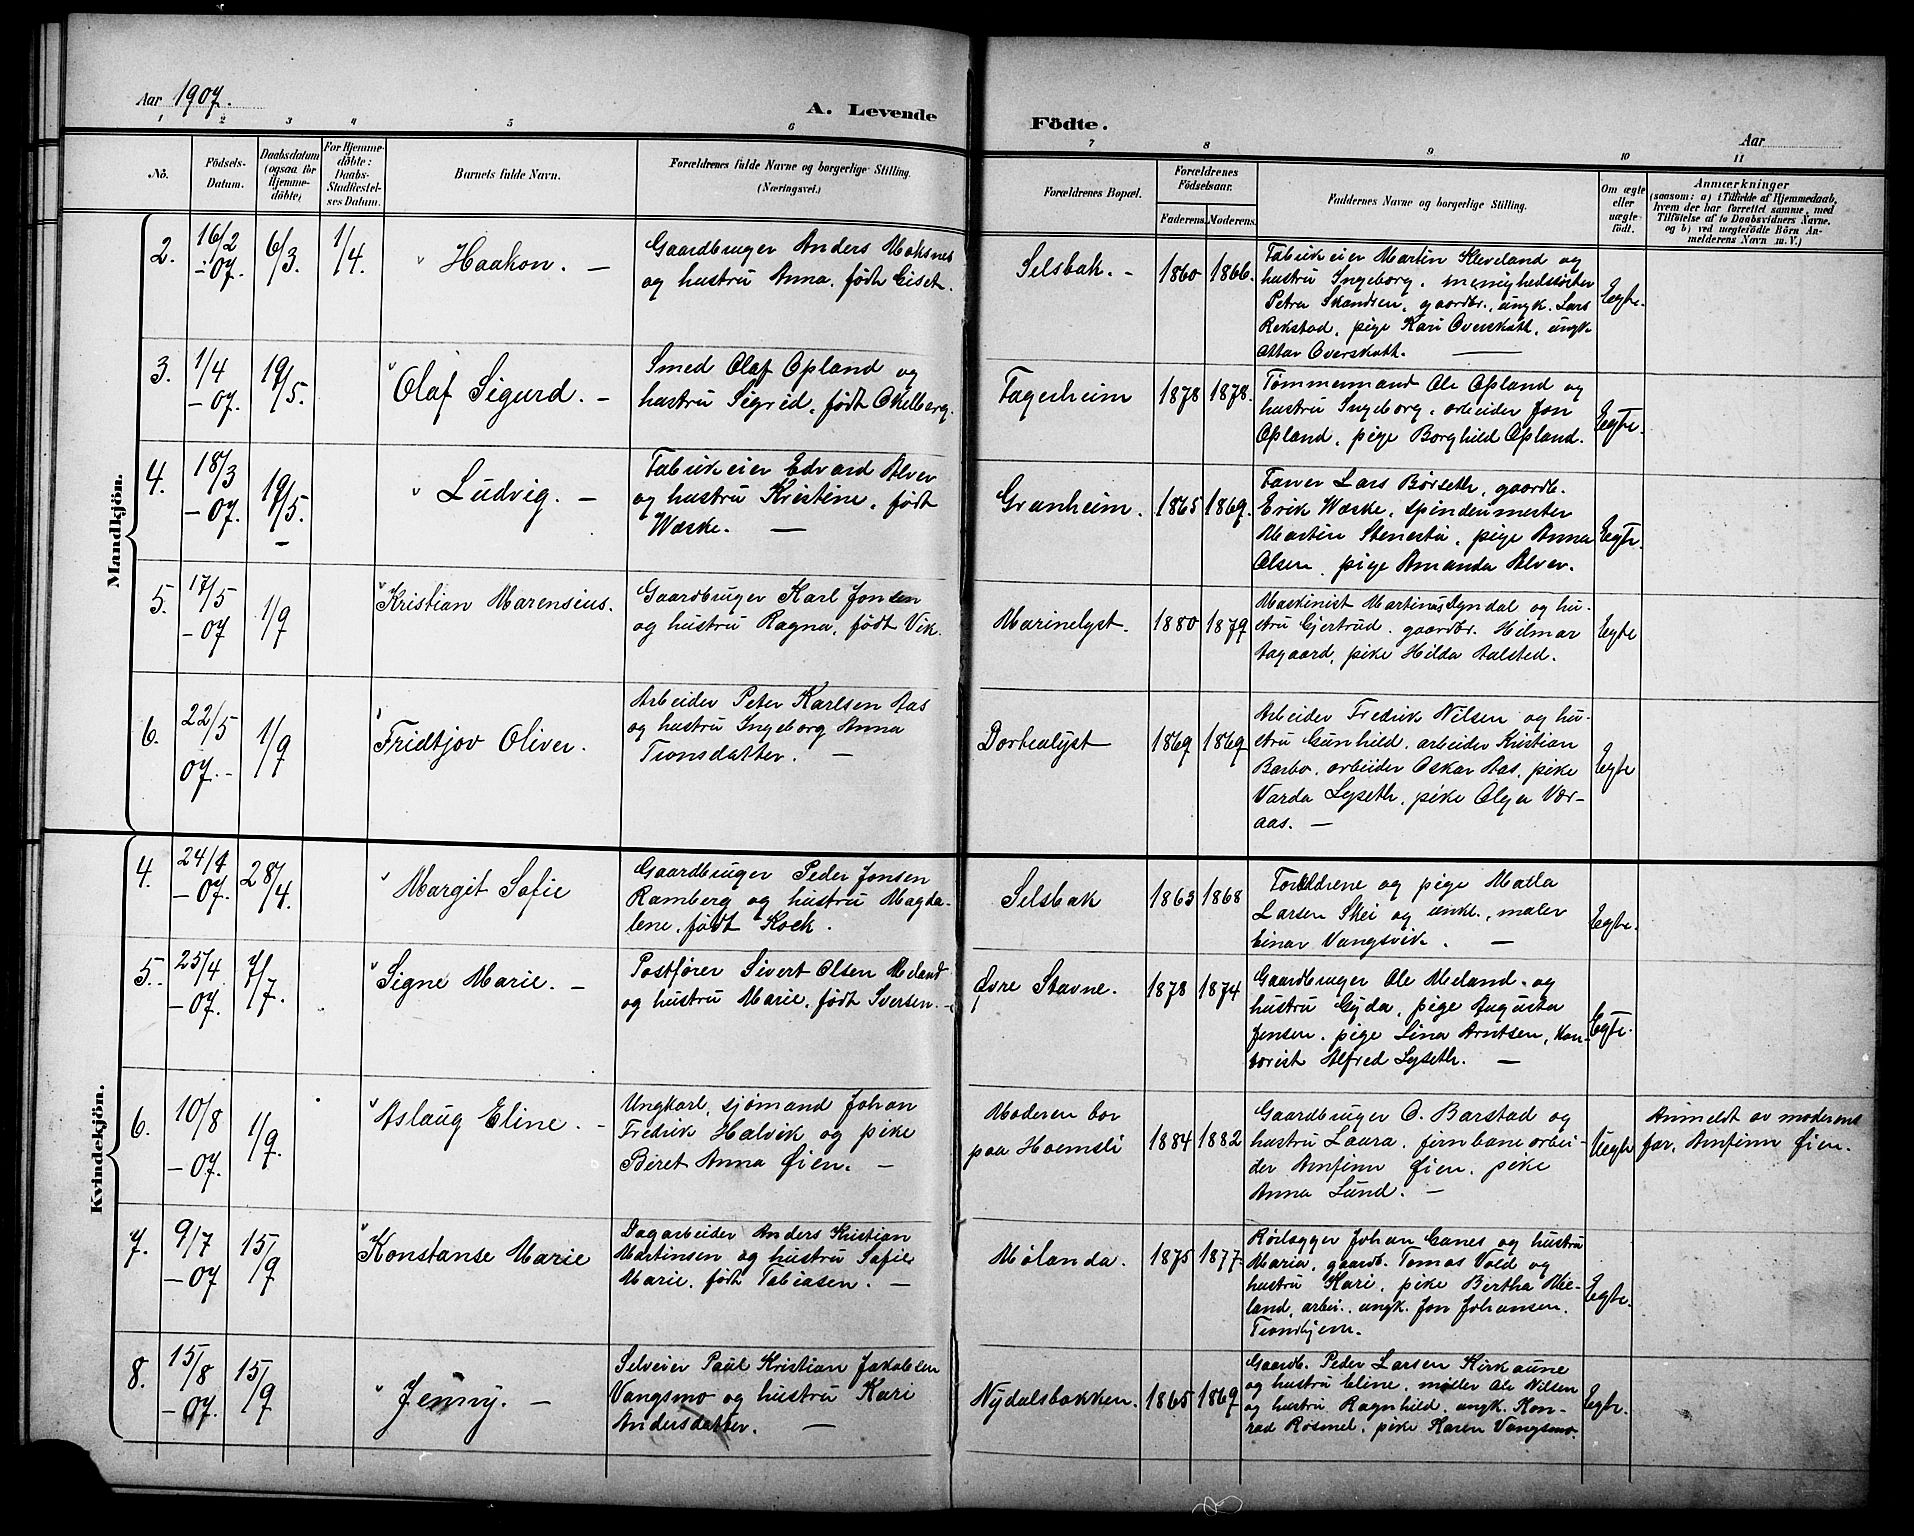 Aar 1907.
A. Levende
Födte.
Aar
1 2 3 4 5 6 7 8 9 10 11
No.
Födsels-
Datum.
Daabsdatum
(ogsaa for
Hjemme-
döbte)
For Hjemme-
döbte:
Daabs-
Stadfæstel-
ses Datum.
Barnets fulde Navn.
Forældrenes fulde Navne og borgerlige Stilling.
(Næringsvei.)
Forældrenes Bopæl.
Forældrenes
Födselsaar.
Faderens. Moderens.
Faddernes Navne og borgerlige Stilling.
Om ægte
eller
uægte
födt.
Anmærkninger
(saasom: a) i Tilfælde af Hjemmedaab,
hvem der har forrettet samme, med
Tilföielse af to Daabsvidners Navne,
og b) ved uegtefödte Börn An-
melderens Navn m. V.)
Mandkjön.
2.
16/2
- 07.
6/3.
1/4.
Haakon. –
Gaardbruger Anders Moksnes
og hustru Anna, født Giset.
Selsbak. -
1860 1866.
Fabrikeier Martin Kleveland og
hustru Ingeborg, menighedssøster
Petra Skandsen, gaardbr., ungk. Lars
Rekstad, pige Kari Overskott, ungk.
Ottar Overskott.
Egte.
3.
1/4
- 07.
19/5.
Olaf Sigurd. –
Smed Olaf Opland og
hustru Sigrid, født Okelberg.
Fagerheim
1878 1878.
Tømmermand Ole Opland og
hustru Ingeborg, arbeider Jon
Opland, pige Borghild Opland.
Egte.
4.
18/3
- 07.
19/5.
Ludvig. –
Fabrikeier Edvard Alver
og hustru Kristine, født
Wæske. –
Granheim.
1865 1869.
Farver Lars Børseth, gaardb.
Erik Wæske, spinderimester
Martin Stenestu, pige Anna
Olsen, pige Amanda Alver.
Egte.
5.
17/5
- 07
1/9
Kristian Marensius.
Gaardbruger Karl Jonsen
og hustru Ragna, født Vik.
Marinelyst.
1880 1879
Maskinist Martinus Lyndal og hu-
stru Gjertrud, gaardbr. Hilmar
Aagaard, pike Hilda Aalsted.
Egte
6.
22/5
07.-
1/9
Fridtjov Oliver.
Arbeider Peter Karlsen Aas
og hustru Ingeborg Anna
Tronsdatter. –
Dorthealyst
1869 1869
Arbeider Fredrik Nilsen og hu-
stru Gunhild, arbeider Kristian
Barbo, arbeider Oskar Aas, pike
Varda Lyseth, pike Olga Vær-
aas. –
Egte
Kvindekjön.
4.
24/1
- 07.
28/4.
Margit Sofie
Gaardbruger Peder Jonsen
Ramberg og hustru Magda-
lene, født Koch.
Selsbak
1863 1868
Forældrene og pige Matla
Larsen Skei og enke., maler
Einar Vangsvik. –
Egte.
5.
25/4
- 07.
7/7.
Signe Marie. –
Postfører Sivert Olsen Meland
og hustru Marie, født Iversen. -
Øvre Stavne.
1878 1874
Gaardbruger Ole Meland og
hustru Gyda, pige Augusta
Jensen, pige Lina Arntsen, kon-
torist Alfred Lyseth. –
Egte.
6.
10/8
- 07.
1/9.
Aslaug Eline. -
Ungkarl, sjømand Johan
Fredrik Halvik og pike
Beret Anna Øien. –
Moderen bor
paa Hoemsli
1884 1882
Gaardbruger O. Barstad og
hustru Laura, jernbanearbei-
der Amfinn Øien, pike
Anna Lund. –
Uegte
Anmeldt av moderens
far, Amfinn Øien.
7.
9/7
- 07
15/9
Konstanse Marie
Dagarbeider Anders Kristian
Martinsen og hustru Sofie
Marie, født Tobiasen. –
Mølanda.
1875 1877.
Rørlægger Johan Canes og hustru
Maria, gaardb. Tomas Vold og
hustru Kari, pike Bertha Me-
land, arbei., ungk. Jon Johansen,
Trondhjem.
Egte.
8.
15/8
- 07.
15/9
Jenny. –
Selveier Paul Kristian Jakobsen
Vangsmo og hustru Kari
Andersdatter. –
Nydalsbakken.
1865 1869
Gaardb. Peder Larsen Kirkaune
og hustru Eline, møller Ole Nilsen
og hustru Ragnhild, ungk. Kon-
rad Røsmel, pike Karen Vangsmo.
Egte.